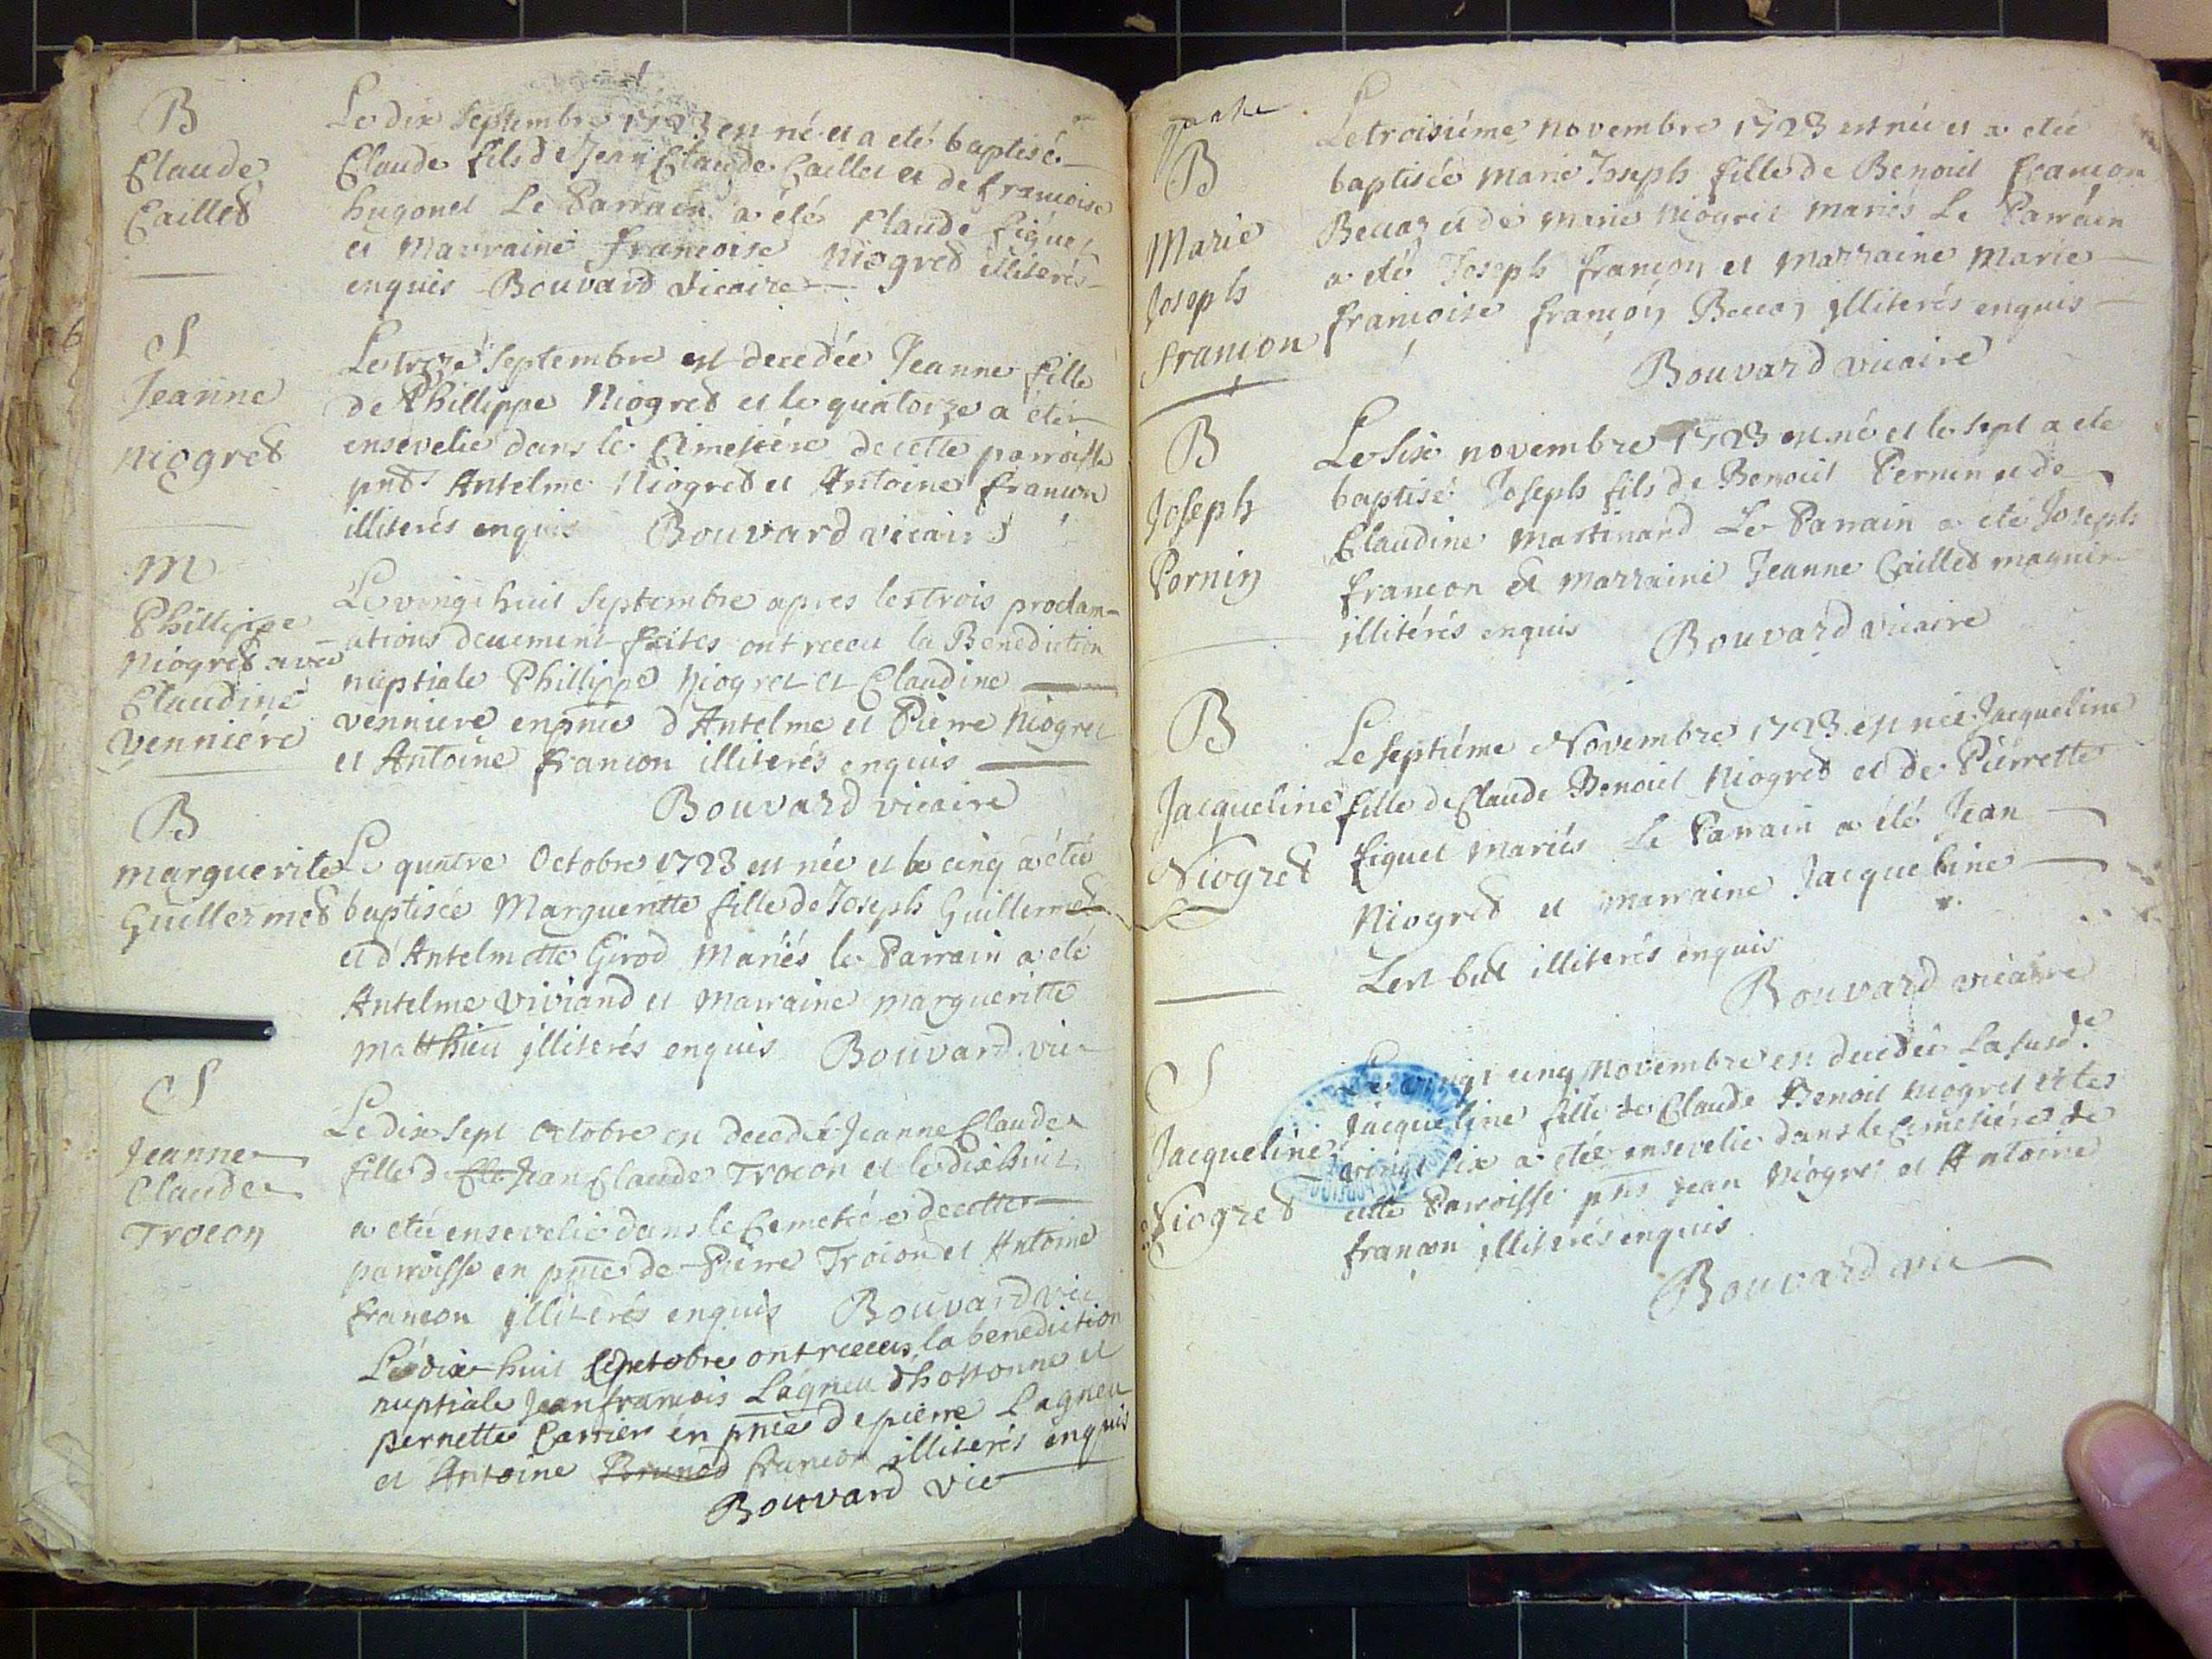 B
Claude
Caillet
Le dix Septembre 1723 est né et a eté baptisé
Claude fils de Jean Claude Caillet et de francoise
hugonet Le Parrain a été Claude figuet
et Marraine francoise Niogret illiterés
enquis Bouvard Vicaire
S
Jeanne
Niogret
Le treze Septembre est decedée Jeanne fille
de Phillippe Niogret et le quatorze a étée
ensevelie dans le Cimetiére de cette parroisse
pnts Antelme Niogret et Antoine francon
illiterés enquis Bouvard vicaire
M
Phillippe
Niogret avec
Claudine
Venniére
Le vingt huit Septembre apres les trois proclam-
-ations deuement faites ont receu la Benediction
nuptiale Phillippe Niogret et Claudine
venniere en pnce d'Antelme et Pierre Niogret
et Antoine francon illiterés enquis
Bouvard vicaire
B
marguerite
Guillermet
Le quatre Octobre 1723 est née et le cinq a étée
baptisée Margueritte fille de Joseph Guillermet
et d'Antelmette Girod Mariés le Parrain a eté
Antelme Viviand et Marraine margueritte
matthieu illiterés enquis Bouvard vic
S
Jeanne
Claude
Trocon
Le dix sept Octobre est decedée Jeanne Claude
fille d Cla Jean Claude Trocon et le dix huit
a etée ensevelie dans le Cemetiére de cette
parroisse en pnce de Pierre Trocon et Antoine
francon illiterés enquis Bouvard vic
Le dix-huit Octobre ont receus la benediction
nuptiale Jean francois Lagneu d'hostonne et
pernette Carrier en pnce de pierre Lagneu
et Antoine Brunod francon illiterés enquis
Bouvard vic
B
Marie
Joseph
francon
Le troisiéme novembre 1723 est née et a etée
baptisée Marie Joseph fille de Benoit francon
Beccaz et de Marie Niogret mariés Le Parrain
a eté Joseph francon et Marraine Marie
francoise francon Beccaz illiterés enquis
Bouvard vicaire
B
Joseph
Pernin
Le Six novembre 1723 est né et le sept a ete
baptisé Joseph fils de Benoit Pernin et de
Claudine Martinand Le Parrain a eté Joseph
francon et Marraine Jeanne Caillet magnin
illitérés enquis Bouvard vicaire
B
Jacqueline
Niogret
Le septiéme Novembre 1723 est née Jacqueline
fille de Claude Benoit Niogret et de Pierrette
figuet Mariés Le Parrain a été Jean
Niogret et marraine Jacqueline
illiterés enquis
Bouvard vicaire
S
Jacqueline
Niogret
Le vingt cinq Novembre est decedée La susde
Jacqueline fille de Claude Benoit Niogret et les
vingt six a etée ensevelie dans le Cemetiére de
cette Parroisse pnts Jean Niogret et Antoine
francon illiterés enquis
Bouvard vic